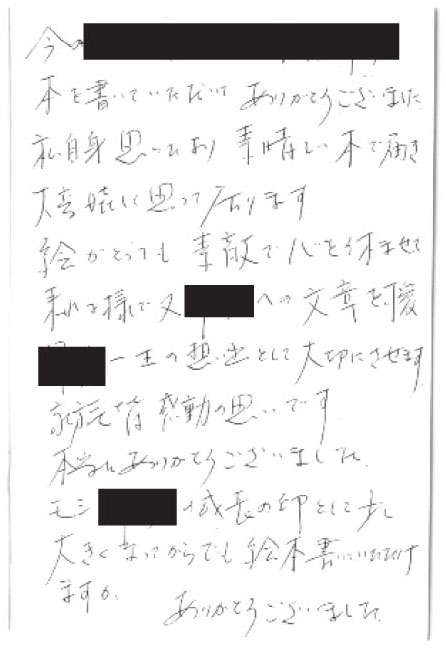 今
本を書いていただけ ありがとうございました
私自身 思っており 素晴しい本で届き
大変嬉しく思って居ります
絵がとっても 素敵で心を休ませて
来れる様で又 への文章も優
一生の想い出として大切にさせます
家族皆 感動の思いです
本当にありがとうございました
モシ の成長の印として少し
大きくなってからでも絵本書いていただけ
ますか。
ありがとうございました